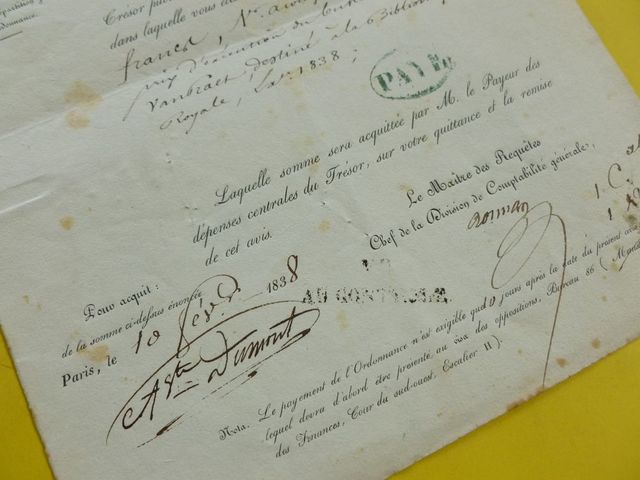 Trésor pu
dans laquelle vous ê
francs, No
prix d'exécution du bus
Vanpraet, destiné à la Biblio
Royale, 1838,
PAYÉ
Laquelle somme sera acquittée par M. le Payeur des
dépenses centrales du Trésor, sur votre quittance et la remise
de cet avis.
Le Maître des Requêtes
Chef de la Division de Comptabilité générale,
Pour acquit:
de la somme ci-dessus énoncée
Paris, le 10 fév. 1838
AU CONTROLE
Dumont
Nota. Le payement de l'Ordonnance n'est exigible que 10 jours après la date du présent
lequel devra d'abord être présenté au visa des oppositions, Bureau 86
des Finances, Cour du sud-ouest, Escalier H).